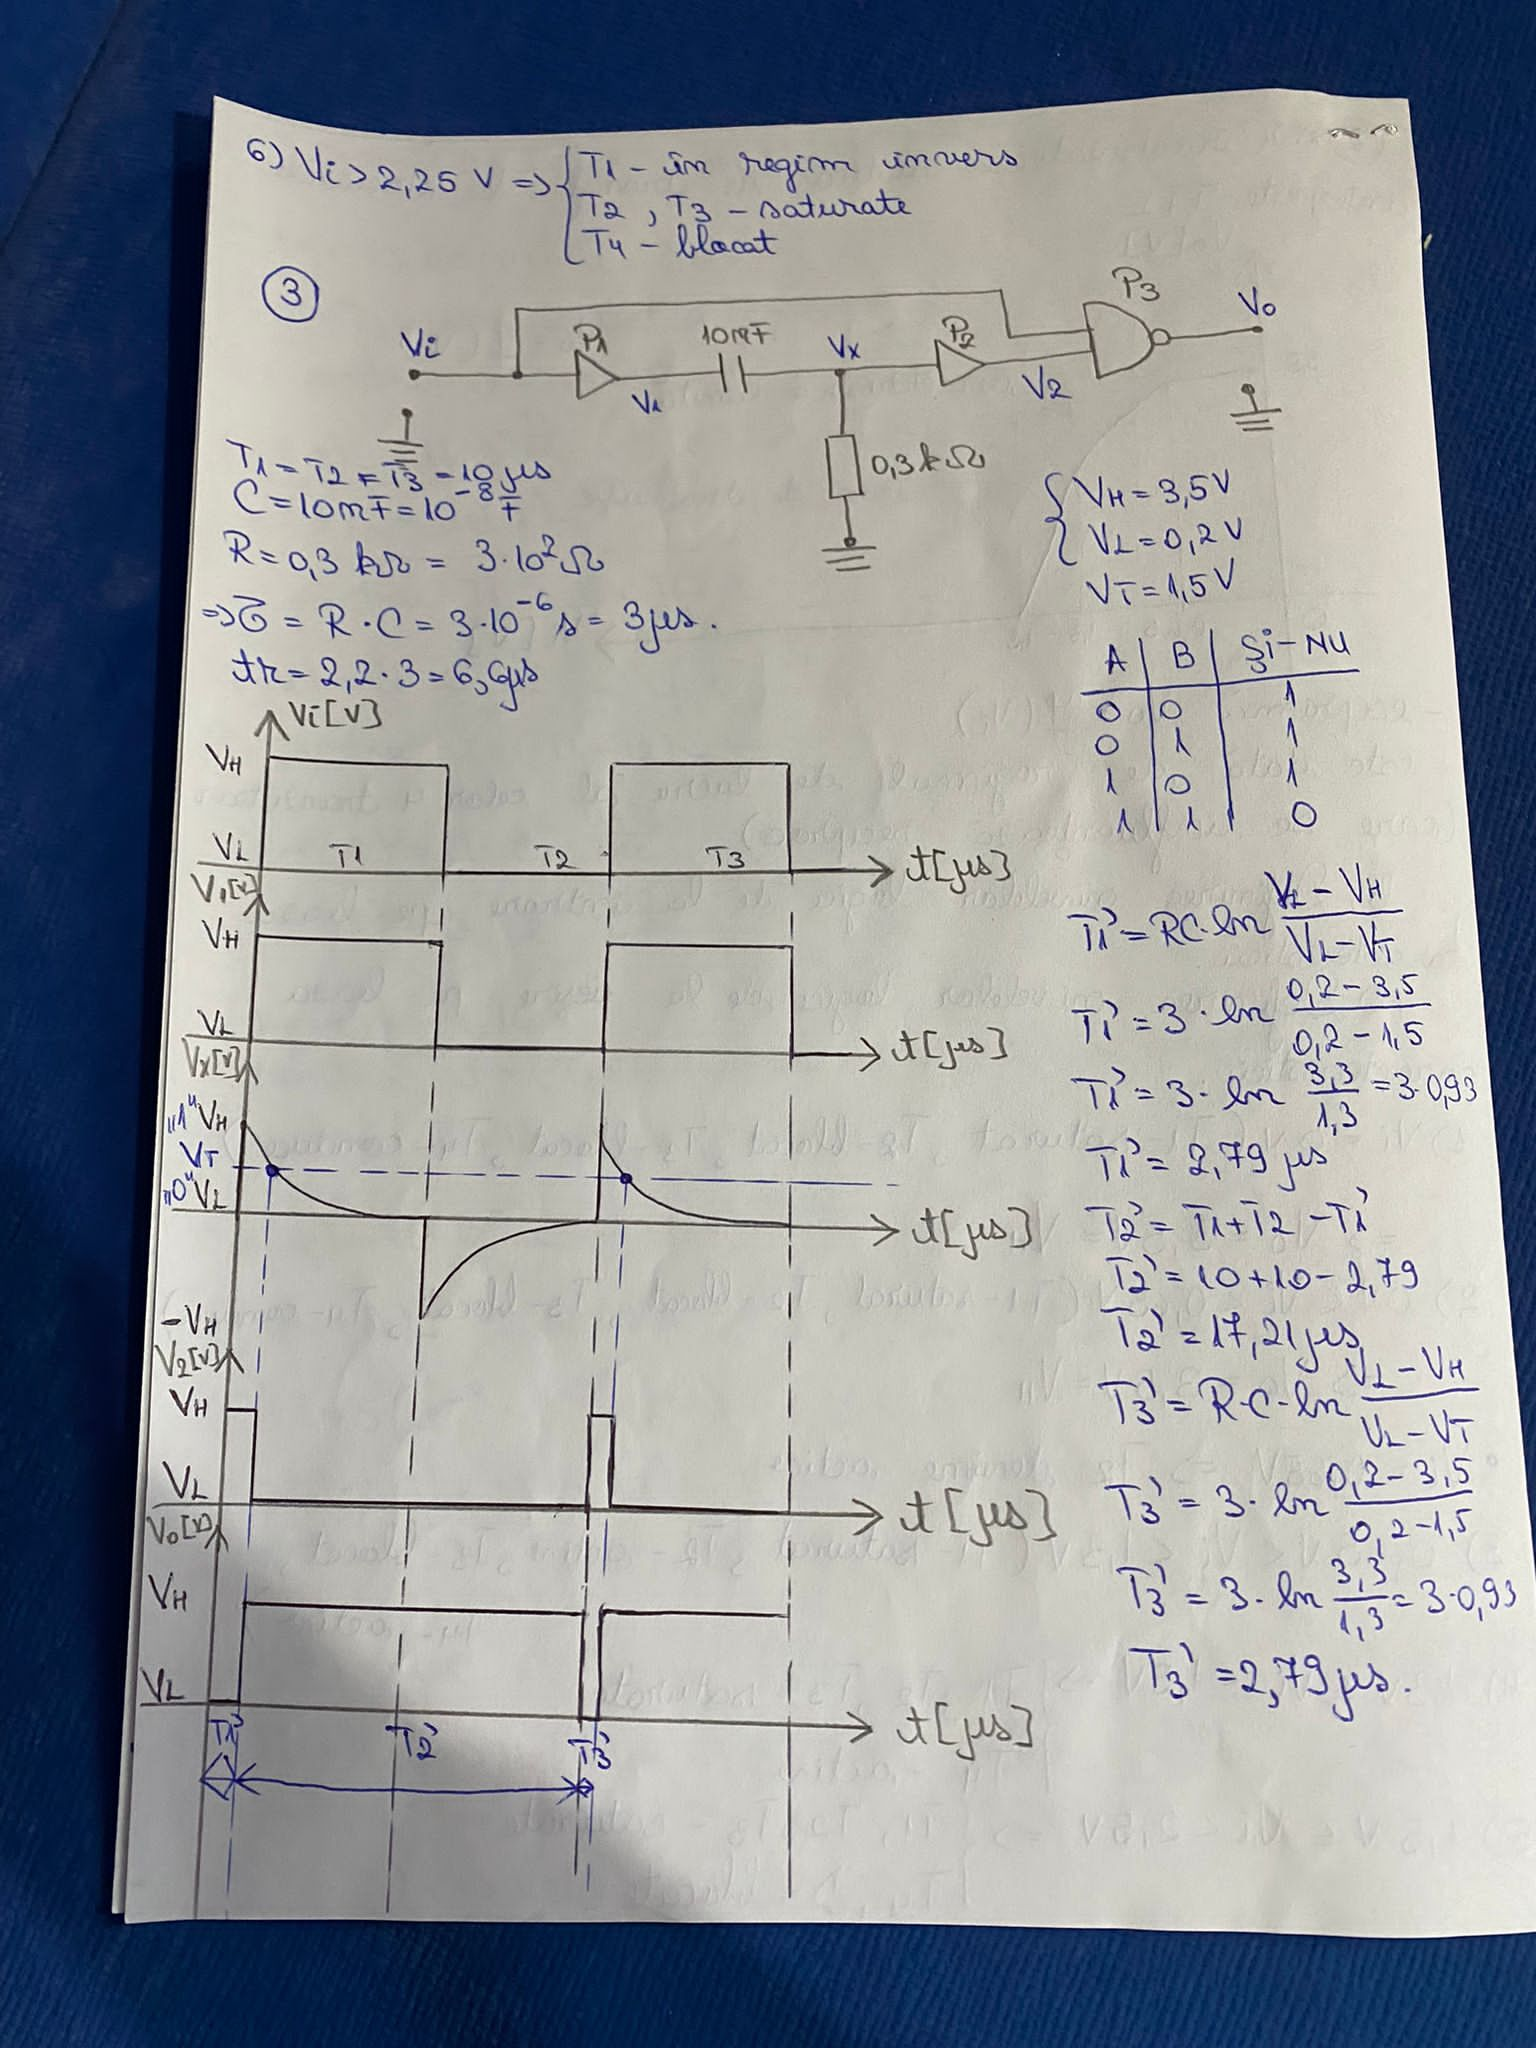 6) Vi > 2,25 V => { T1 - în regim invers
T2, T3 - saturate
T4 - blocat
3
Vi P1 V1 10nF Vx P2 V2 P3 Vo
0,3 kΩ
T1 = T2 = T3 = 10 μs
C = 10nF = 10⁻⁸ F
R = 0,3 kΩ = 3·10² Ω
=> τ = R·C = 3·10⁻⁶ s = 3 μs.
tr = 2,2·3 = 6,6μs
{ VH = 3,5 V
VL = 0,2 V
VT = 1,5 V
A | B | Și-NU
0 | 0 | 1
0 | 1 | 1
1 | 0 | 1
1 | 1 | 0
Vi[V]
VH
VL T1 T2 T3 t[μs]
V1[V]
VH
VL t[μs]
Vx[V]
„1" VH
VT
„0" VL t[μs]
-VH
V2[V]
VH
VL t[μs]
Vo[V]
VH
VL t[μs]
T1' T2' T3'
T1' = RC·ln (VL - VH)/(VL - VT)
T1' = 3·ln (0,2 - 3,5)/(0,2 - 1,5)
T1' = 3·ln 3,3/1,3 = 3·0,93
T1' = 2,79 μs
T2' = T1 + T2 - T1'
T2' = 10 + 10 - 2,79
T2' = 17,21 μs
T3' = R·C·ln (VL - VH)/(VL - VT)
T3' = 3·ln (0,2 - 3,5)/(0,2 - 1,5)
T3' = 3·ln 3,3/1,3 = 3·0,93
T3' = 2,79 μs.